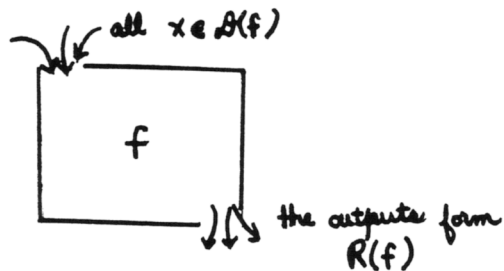 all x ∈ 𝒟(f)
f
the outputs form
R(f)